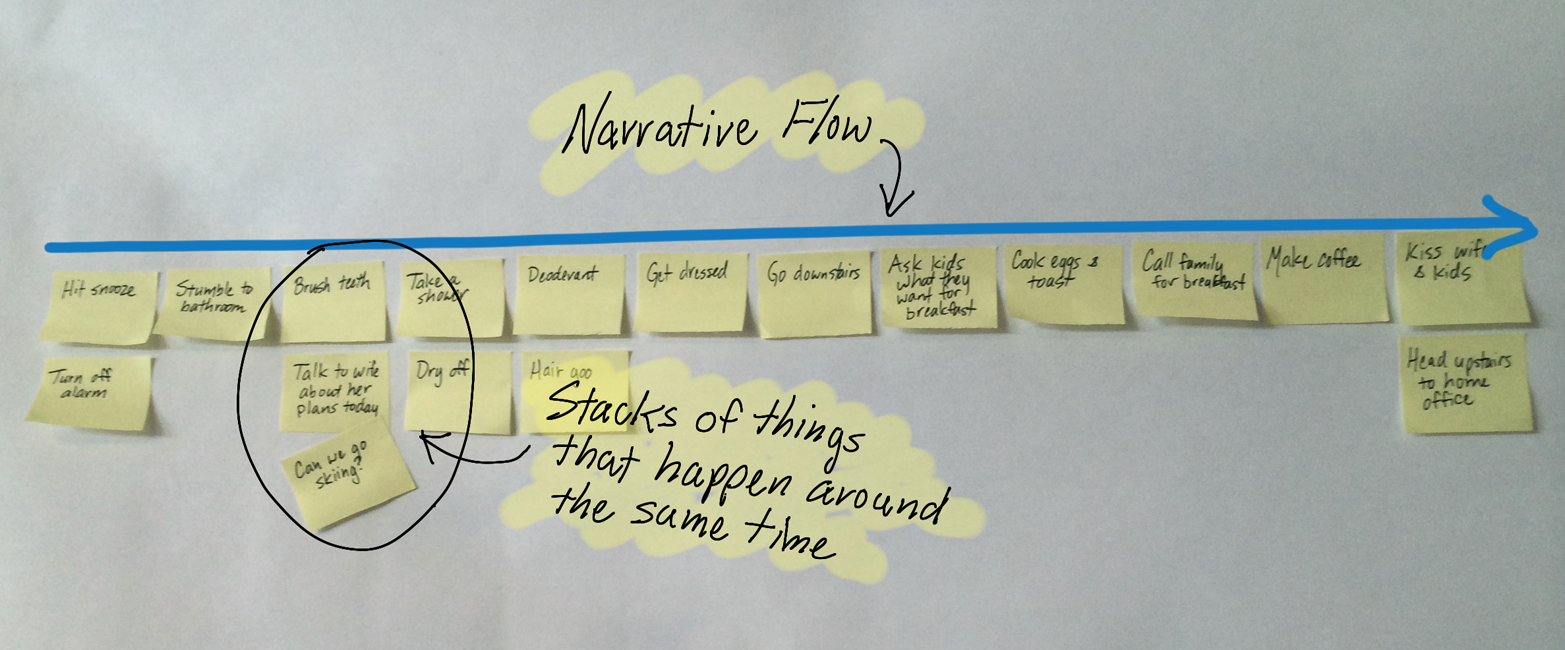 Narrative Flow
Hit snooze
Stumble to
bathroom
Brush teeth
Take a
shower
Deodevant
Get dressed
Go downstairs
Ask kids
what they
want for
breakfast
Cook eggs &
toast
Call family
for breakfast
Make coffee
Kiss wife
& kids
Turn off
alarm
Talk to wife
about her
plans today
Dry off
Hair goo
Head upstairs
to home
office
Can we go
skiing?
Stacks of things
that happen around
the same time